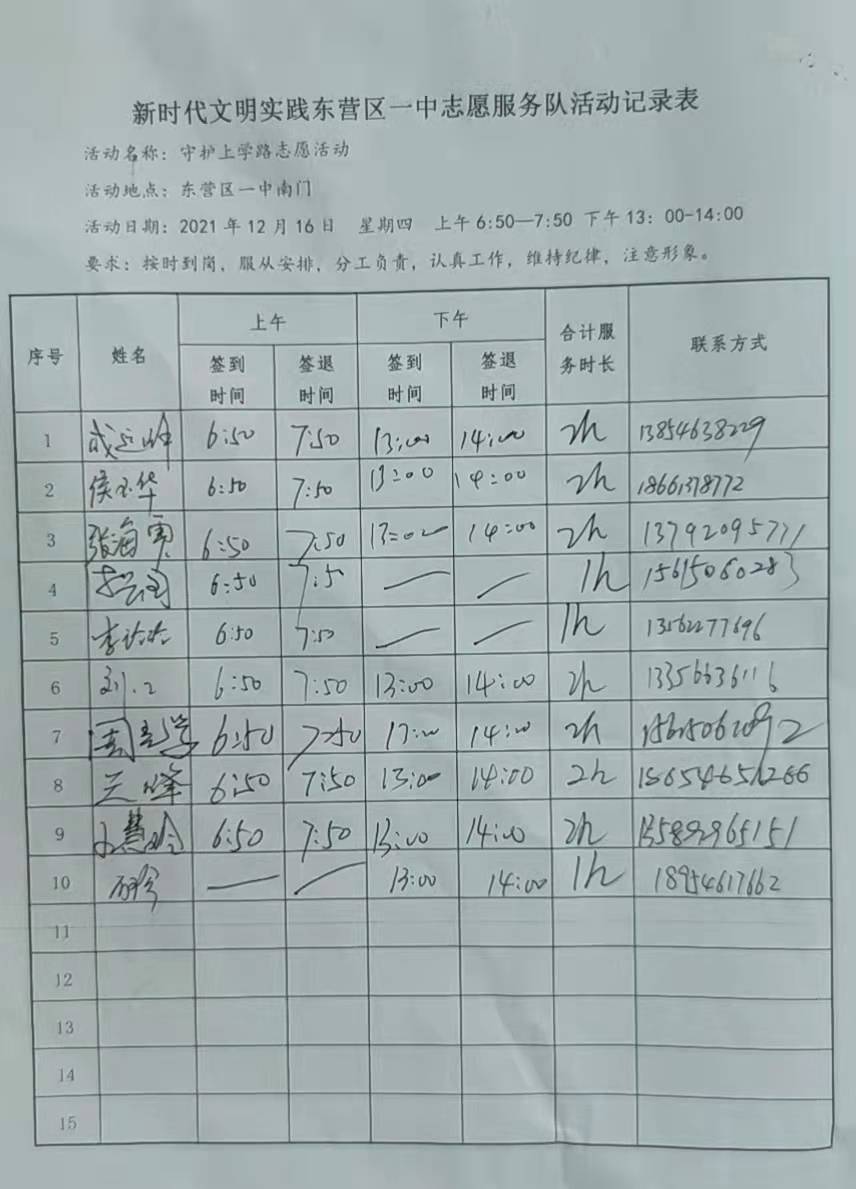 新时代文明实践东营区一中志愿服务队活动记录表
活动名称：守护上学路志愿活动
活动地点：东营区一中南门
活动日期：2021年12月16日 星期四 上午6:50—7:50 下午13：00-14:00
要求：按时到岗，服从安排，分工负责，认真工作，维持纪律，注意形象。
序号 姓名 上午 下午 合计服务时长 联系方式
签到时间 签退时间 签到时间 签退时间
1 6:50 7:50 13:00 14:00 2h 13854638229
2 侯玉华 6:50 7:50 13:00 14:00 2h 18661378772
3 张海 6:50 7:50 13:00 14:00 2h 13792095771
4 6:50 7:50 — — 1h 15615060283
5 李 6:50 7:50 — — 1h 13562277696
6 刘 6:50 7:50 13:00 14:00 2h 13356636116
7 周 6:50 7:50 14:00 2h
8 兰峰 6:50 7:50 13:00 14:00 2h
9 慧玲 6:50 7:50 13:00 14:00 2h 135892965151
10 — — 13:00 14:00 1h 18954617662
11
12
13
14
15